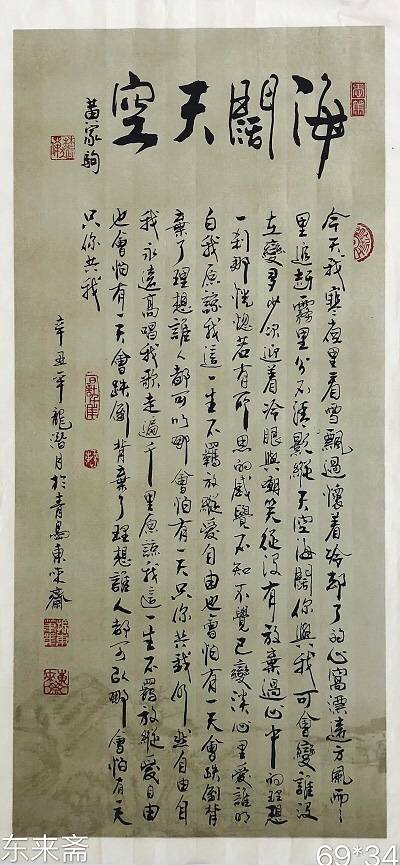 海闊天空
黃家駒
今天我寒夜里看雪飄過懷着冷却了的心窩漂遠方風雨
里追趕霧里分不清影蹤天空海闊你與我可會變誰沒
在變多少次迎着冷眼與嘲笑從沒有放棄過心中的理想
一刹那恍惚若有所思的感覺不知不覺已變淡心里愛誰明
白我原諒我這一生不羈放縱愛自由也會怕有一天會跌倒背
棄了理想誰人都可以哪會怕有一天只你共我仍然自由自
我永遠高唱我歌走遍千里原諒我這一生不羈放縱愛自由
也會怕有一天會跌倒背棄了理想誰人都可以哪會怕有一天
只你共我
辛丑年龍潛月於青島東來齋
东来斋
69*34